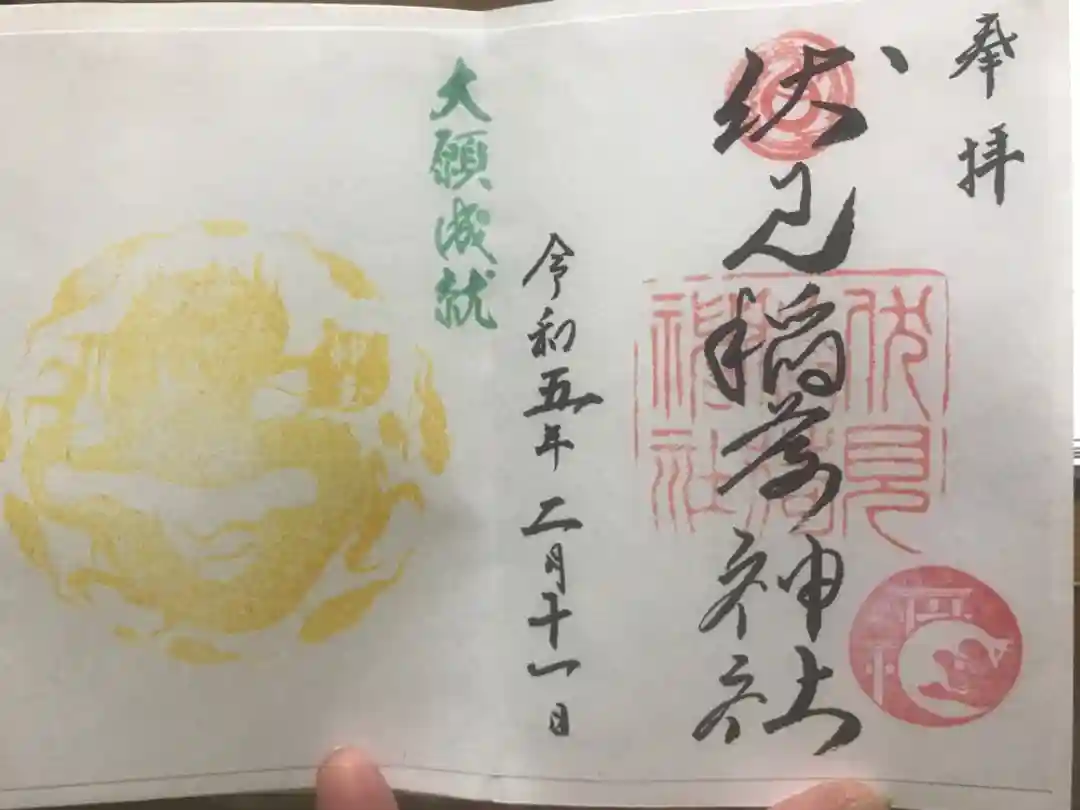 奉拝
伏見稲荷神社
伏見
稲荷
神社
令和五年二月十一日
大願成就